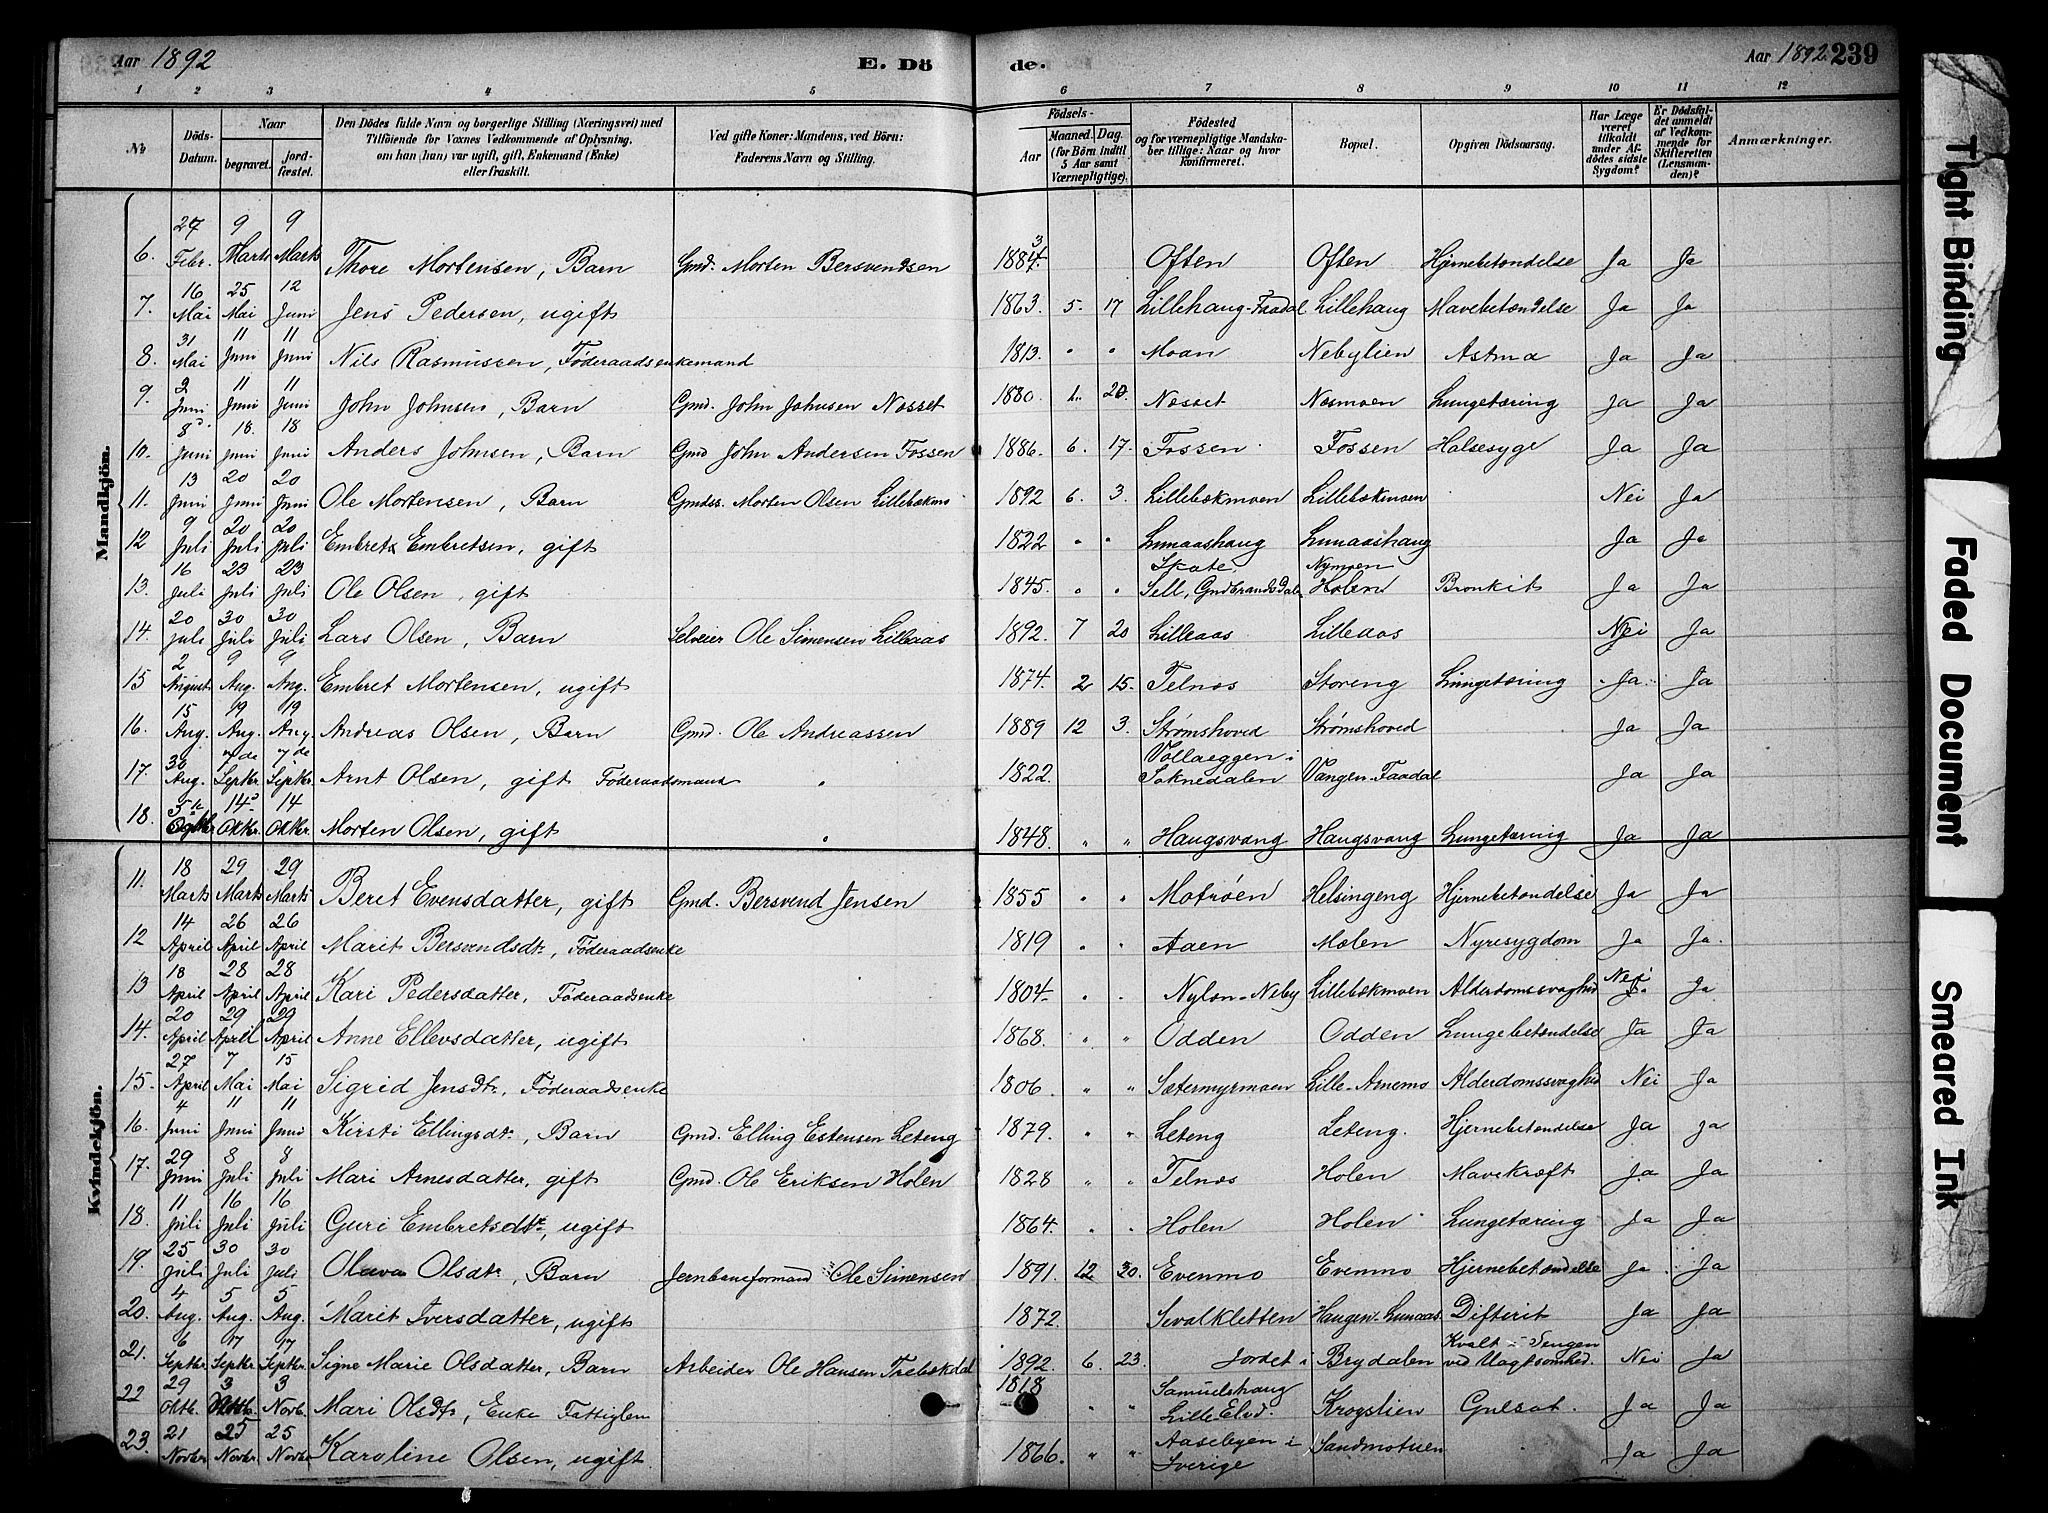 Aar 1892 E. Döde. Aar 1892. 239
1 2 3 4 5 6 7 8 9 10 11 12
№ Döds-Datum. Naar begravet. jordfæstet. Den Dödes fulde Navn og borgerlige Stilling (Næringsvei) med Tilföiende for Voxnes Vedkommende af Oplysning, om han (hun) var ugift, gift, Enkemand (Enke) eller fraskilt. Ved gifte Koner: Mandens, ved Börn: Faderens Navn og Stilling. Födsels- Aar Maaned. Dag. (for Börn indtil 5 Aar samt Værnepligtige). Födested og for værnepligtige Mandskaber tillige: Naar og hvor Konfirmeret. Bopæl. Opgiven Dödsaarsag. Har Læge været tilkaldt under Afdödes sidste Sygdom? Er Dödsfaldet anmeldt af Vedkommende for Skifteretten (Lensmanden)? Anmærkninger.
Mandkjön.
6. 27 Febr. 9 Marts 9 Marts Thore Mortensen, Barn Gmd. Morten Bersvendsen 1883 Often Often Hjernebetændelse Ja Ja
7. 16 Mai 25 Mai 12 Juni Jens Pedersen, ugift 1863 5. 17 Lillehaug-Faadal Lillehaug Mavebetændelse Ja Ja
8. 31 Mai 11 Juni 11 Juni Nils Rasmussen, Føderaadsenkemand 1813. " " Moan Nebylien Astma Ja Ja
9. 2 Juni 11 Juni 11 Juni John Johnsen, Barn Gmd. John Johnsen Nosset 1880. 1. 20. Næsset Næsmoen Lungetæring Ja Ja
10. 8 Juni 18. Juni 18 Juni Anders Johnsen, Barn Gmd John Andersen Fossen 1886. 6. 17. Fossen Fossen Halsesyge Ja Ja
11. 13 Juni 20 Juni 20 Juni Ole Mortensen, Barn Gmdss. Morten Olsen Lillebækmo 1892 6 3. Lillebækmoen Lillebækmoen Nei Ja
12 9 Juli 20 Juli 20 Juli Embret Embretsen, gift 1822 " " Lunaashaug Lunaashaug Ja Ja
13. 16 Juli 23 Juli 23 Juli Ole Olsen, gift 1845. " " Skate, Sell, Gudbrandsdalen Nymoen Holen Bronkit Ja Ja
14. 20 Juli 30 Juli 30 Juli Lars Olsen, Barn Selveier Ole Simensen Lilleaas 1892. 7 20 Lilleaas Lilleaas Nei Ja
15 2 August 9 Aug. 9 Aug. Embret Mortensen, ugift 1874. 2 15. Telnæs Storeng Lungetæring Ja Ja
16. 15 Aug. 19 Aug. 19 Aug. Andreas Olsen, Barn Gmd. Ole Andreassen 1889 12 3. Strømshoved Strømshoved Ja Ja
17. 30 Aug. 7de Septbr. 7de Septbr. Arnt Olsen, gift Føderaadsmand " 1822. Vollaeggen i Soknedalen Vangen-Faadal Ja Ja
18. 5te 14 Oktbr. 14 Oktbr. Morten Olsen, gift " 1848. " " Haugsvang Haugsvang Lungetæring Ja Ja
Kvindekjön.
11. 18 Marts 29 Marts 29 Marts Beret Evensdatter, gift Gmd. Bersvend Jensen 1855 " " Motrøen Helsingeng Hjernebetændelse Ja Ja
12 14 April 26 April 26 April Marit Bersvendsdt., Føderaadsenke 1819 " " Aaen Molen Nyresygdom Ja Ja.
13 18 April 28 April 28 April Kari Pedersdatter, Føderaadsenke 1804. " " Nyløn-Neby Lillebækmoen Alderdomssvaghed Nei Ja
14. 20 April 29 April 29 April Anne Ellevsdatter, ugift 1868. " " Odden Odden Lungebetændelse Ja Ja
15. 27 April 7 Mai 15 Mai Sigrid Jensdt., Føderaadsenke 1806. " " Sætermyrmoen Lille-Arnemo Alderdomssvaghed Nei Ja
16. 4 Juni 11 Juni 11 Juni Kirsti Ellingsdt., Barn Gmd. Elling Estensen Leteng 1879. " " Leteng Leteng. Hjernebetændelse Ja Ja
17. 29 Juni 8 Juli 8 Juli Mari Arnesdatter, gift Gmd. Ole Eriksen Holen 1828 " " Telnæs Holen Mavekræft Ja Ja
18. 11 Juli 16 Juli 16 Juli Guri Embretsdt., ugift 1864. " " Holen Holen Lungetæring Ja Ja
19. 25 Juli 30 Juli 30 Juli Olava Olsdt., Barn Jernbaneformand Ole Simensen 1891. 12 30. Evenmo Evenmo Hjernebetændelse Ja Ja
20. 4 Aug. 5 Aug. 5 Aug. Marit Iversdatter, ugift 1872. Sivalkletten Haugen-Lunaas Difterit Ja Ja
21. 6 Septbr 17 Septbr 17 Septbr Signe Marie Olsdatter, Barn Arbeider Ole Hansen Trebækdal 1892. 6. 23. Jordet i Brydalen Kvalt i Sengen ved Uagtsomhed. Nei Ja
22 29 Oktb. 3 3 Novb. Mari Olsdt., Enke Fattiglem 1818 " " Samuelshaug Lille Elvd. Krogslien Gulsot. Ja Ja
23. 21 Novbr 25 Novbr 25 Novbr Karoline Olsen, ugift 1866. " " Aasebyen i Sverige Sandmotuen Ja Ja
Tight Binding
Faded Document
Smeared Ink